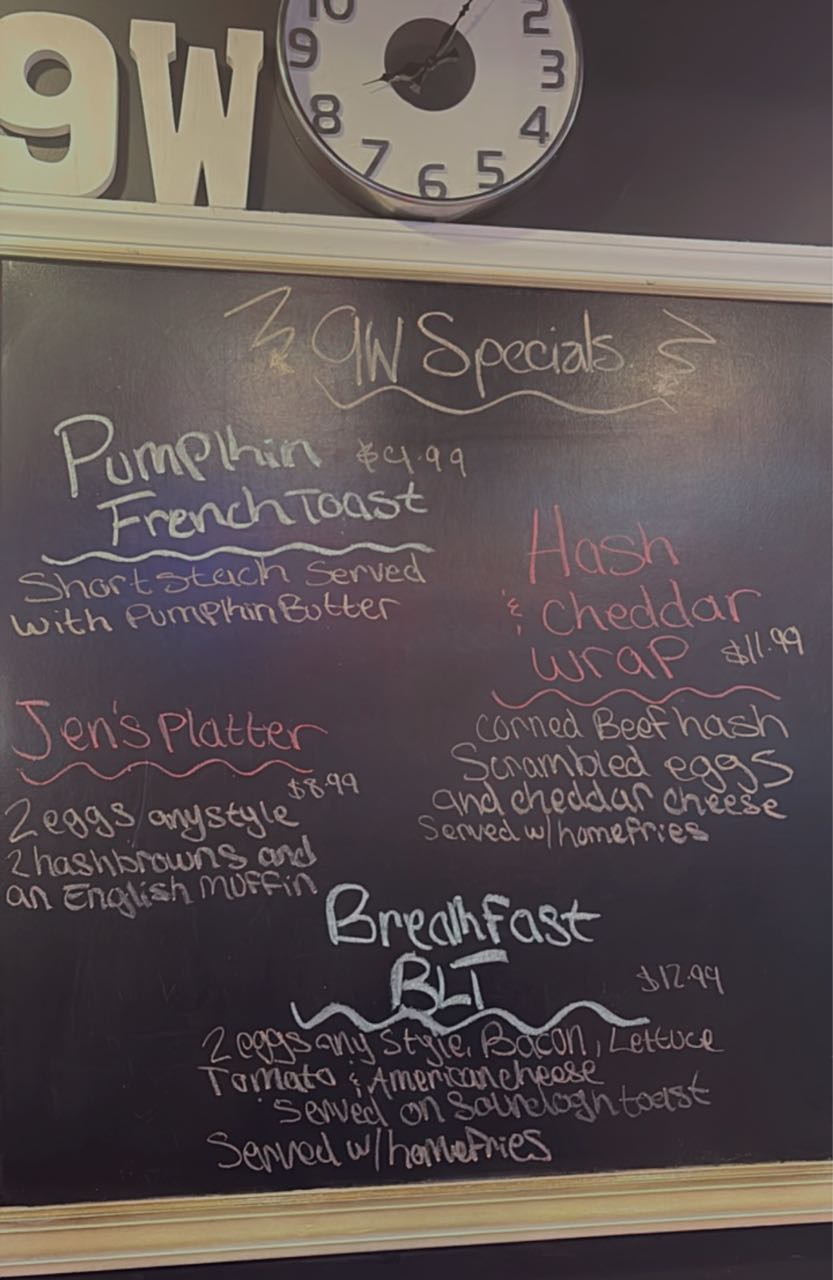 9W
10
2
9
3
8
4
7
6
5
9W Specials
Pumpkin $9.99
French Toast
Short stack Served
with Pumpkin Butter
Hash
& cheddar
wrap $11.99
corned Beef hash
Scrambled eggs
and cheddar cheese
Served w/ homefries
Jen's Platter
$8.99
2 eggs any style
2 hashbrowns and
an English muffin
Breakfast
BLT $12.99
2 eggs any style, Bacon, Lettuce
Tomato & American cheese
Served on Sourdogh toast
Served w/ homefries